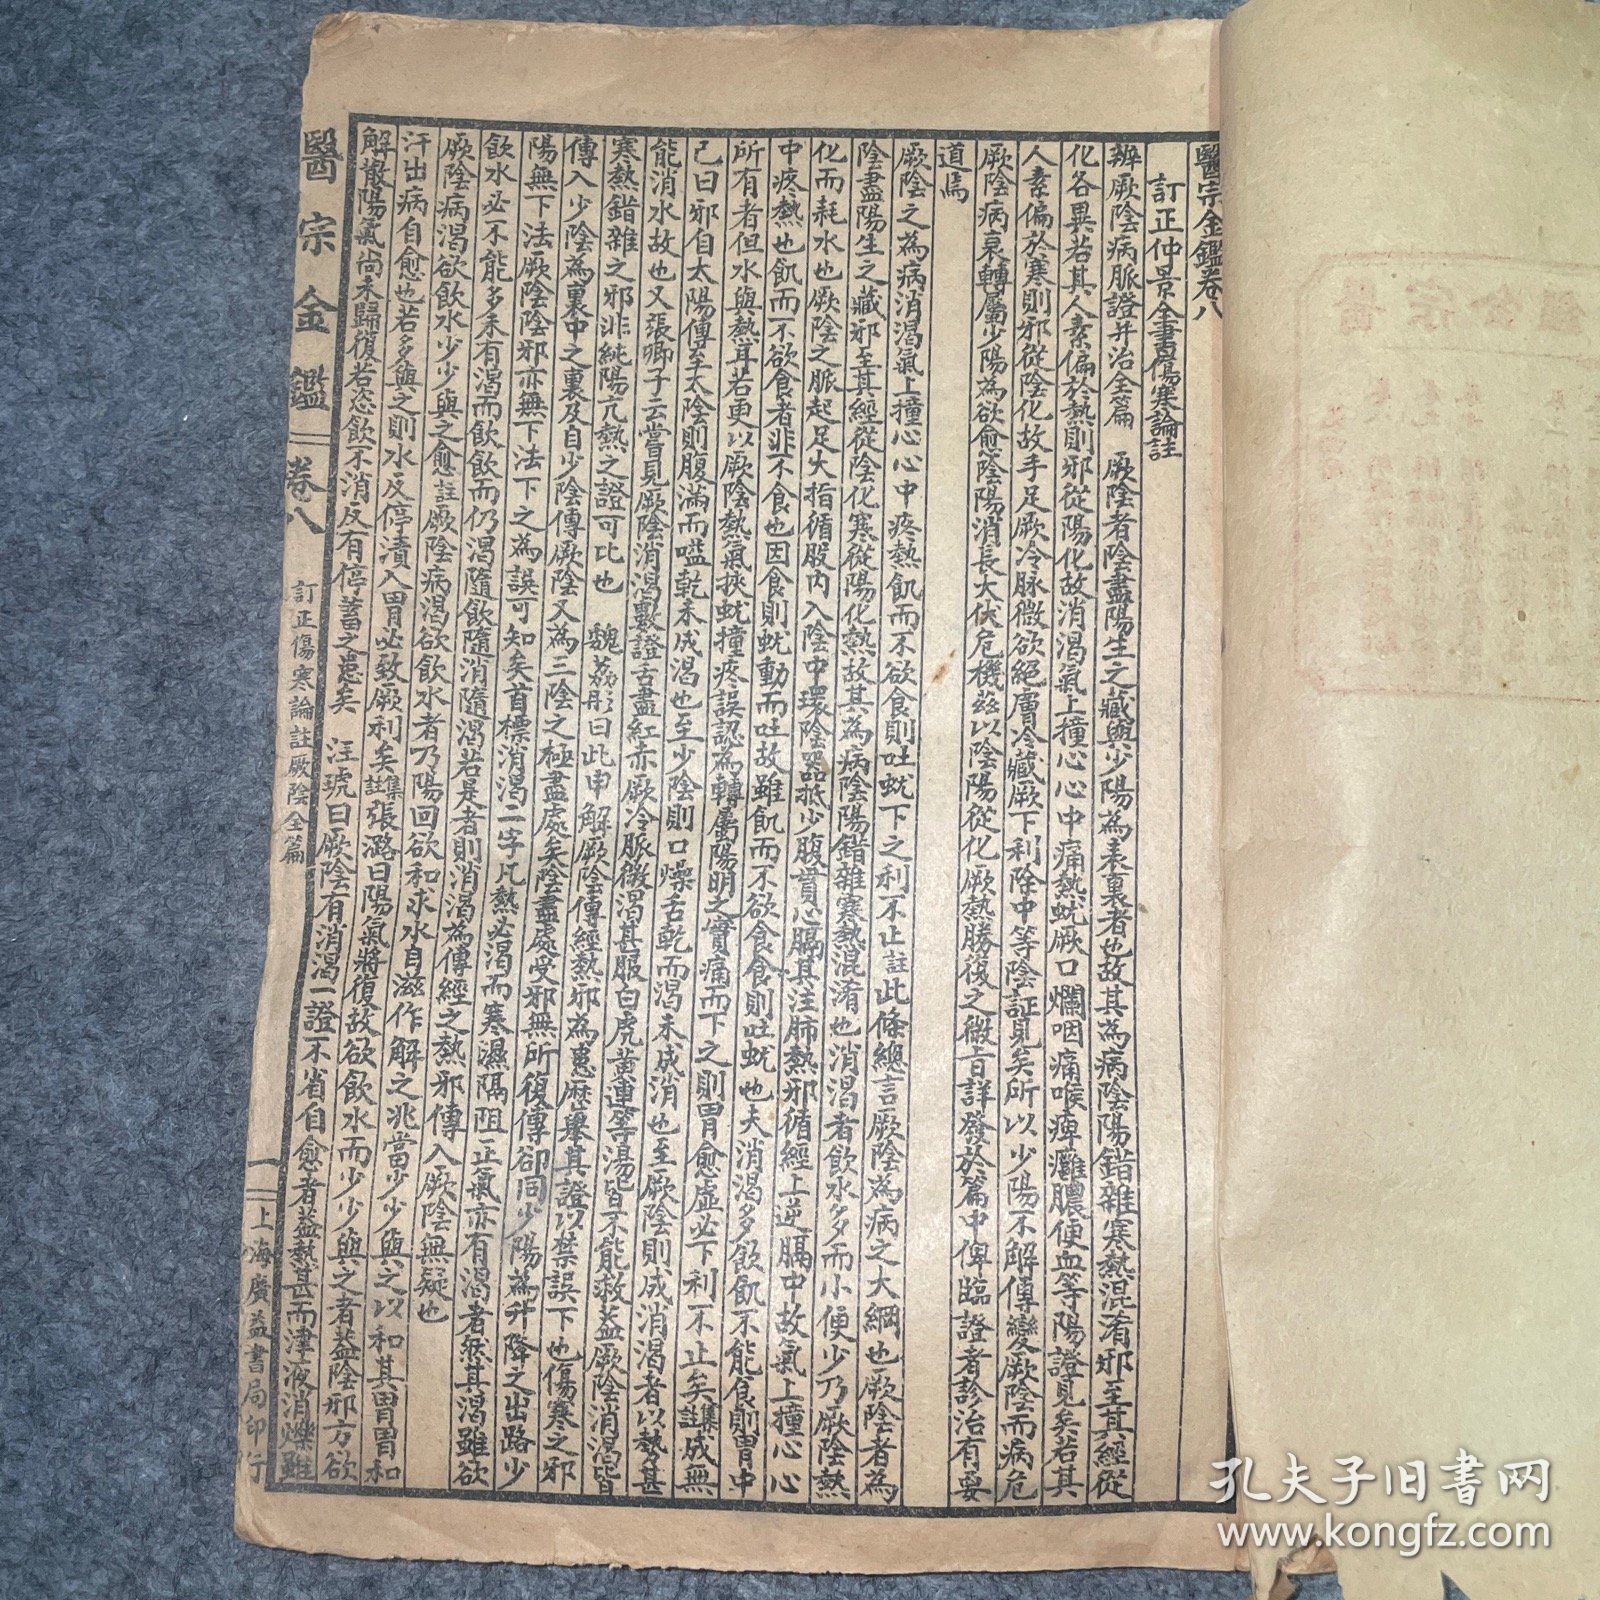 醫宗金鑑卷八
訂正仲景全書傷寒論註
辨厥陰病脈證并治全篇　厥陰者陰盡陽生之藏與少陽為表裏者也故其為病陰陽錯雜寒熱混淆邪至其經從
化各異若其人素偏於熱則邪從陽化故消渴氣上撞心心中痛熱蚘厥口爛咽痛喉痺癰膿便血等陽證見矣若其
人素偏於寒則邪從陰化故手足厥冷脉微欲絕膚冷藏厥下利除中等陰証見矣所以少陽不解傳變厥陰而病危
厥陰病衰轉屬少陽為欲愈陰陽消長大伏危機茲以陰陽從化厥熱勝復之微旨詳發於篇中俾臨證者診治有要
道焉
厥陰之為病消渴氣上撞心心中疼熱飢而不欲食食則吐蚘下之利不止註此條總言厥陰為病之大綱也厥陰者為
陰盡陽生之藏邪至其經從陰化寒從陽化熱故其為病陰陽錯雜寒熱混淆也消渴者飲水多而小便少乃厥陰熱
化而耗水也厥陰之脈起足大指循股內入陰中環陰器抵少腹貫心膈其注肺熱邪循經上逆膈中故氣上撞心心
中疼熱也飢而不欲食者非不食也因食則蚘動而吐故雖飢而不欲食食則吐蚘也夫消渴多飲飢不能食則胃中
所有者但水與熱耳若更以厥陰熱氣挾蚘撞疼誤認為轉屬陽明之實痛而下之則胃愈虛必下利不止矣集註成無
己曰邪自太陽傳至太陰則腹滿而嗌乾未成渴也至少陰則口燥舌乾而渴未成消也至厥陰則成消渴者以熱甚
能消水故也又張卿子云嘗見厥陰消渴數證舌盡紅赤厥冷脈微渴甚服白虎黃連等湯皆不能救蓋厥陰消渴皆
寒熱錯雜之邪非純陽亢熱之證可比也　魏荔彤曰此申解厥陰傳經熱邪為患歷舉其證以禁誤下也傷寒之邪
傳入少陰為裏中之裏及自少陰傳厥陰又為三陰之極盡處矣陰盡處受邪無所復傳卻同少陽為升降之出路少
陽無下法厥陰陰邪亦無下法下之為誤可知矣首標消渴二字凡熱必渴而寒濕隔阻正氣亦有渴者然其渴雖欲
飲水必不能多未有渴而飲飲而仍渴隨飲隨消隨渴若是者則消渴為傳經之熱邪傳入厥陰無疑也
厥陰病渴欲飲水少少與之愈註厥陰病渴欲飲水者乃陽回欲和求水自滋作解之兆當少少與之以和其胃胃和
汗出病自愈也若多與之則水反停漬入胃必致厥利矣集註張璐曰陽氣將復故欲飲水而少少與之者蓋陰邪方欲
解散陽氣尚未歸復若恣飲不消反有停蓄之患矣　汪琥曰厥陰有消渴一證不省自愈者蓋熱甚而津液消爍雖
醫宗金鑑　卷八　訂正傷寒論註厥陰全篇　一　上海廣益書局印行
孔夫子旧书网
www.kongfz.com